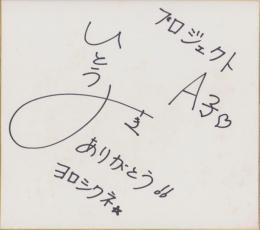 プロジェクト
A子♡
いとう
まき
ありがとう!!
ヨロシクネ★